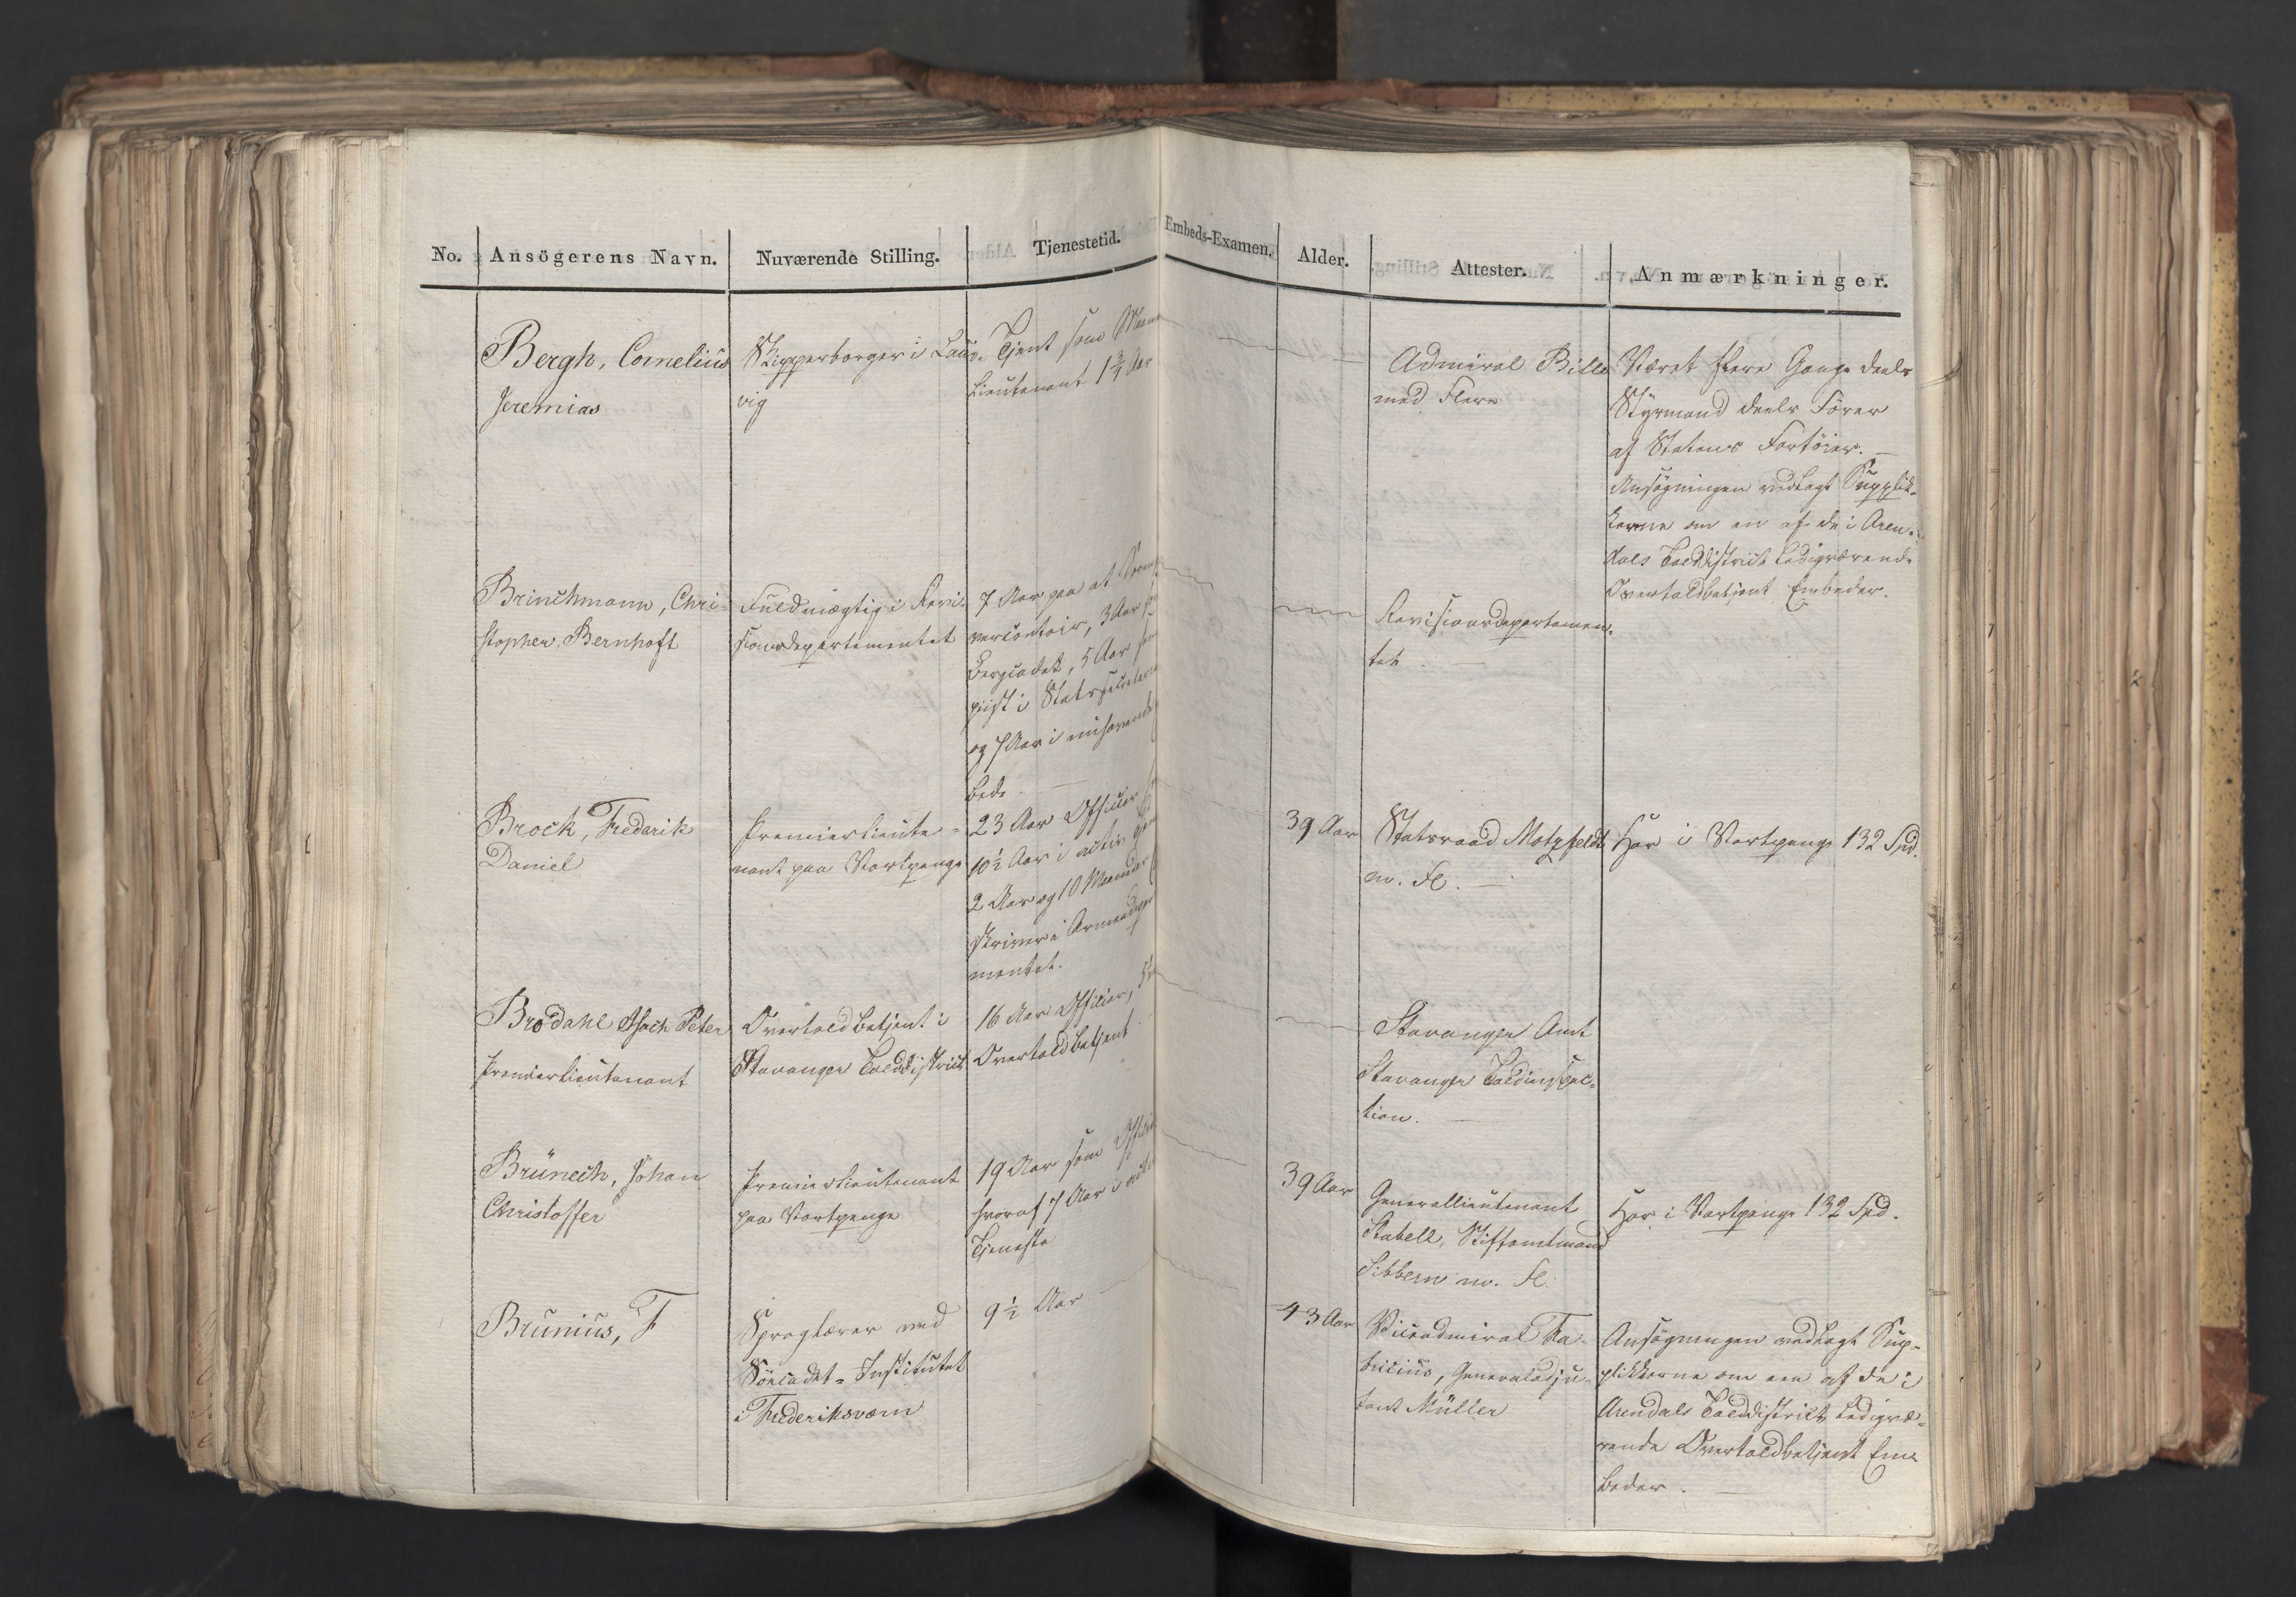 No. Ansögerens Navn. Nuværende Stilling. Tjenestetid. Embeds-Examen. Alder. Attester. Anmærkninger.
Bergh, Cornelius
Jeremias
Skipperborger i Laur-
vig
Tjent som Maaneds
Lieutenant 1¾ Aar
Admiral Bille
med Flere
Været flere Gange deels
Styrmand deels Fører
af Statens Fartøier. —
Ansøgningen vedlagt Supplik-
kerne om en af de i Aren-
dals Tolddistrict ledigværende
Overtoldbetjent Embeder.
Brinchmann, Chri-
stopher, Bernhoft
Fuldmægtig i Revi-
sionsdepartementet
7 Aar paa et Soren
vercontoir, 3 Aar
Bergcadet, 5 Aar
piist i Statssecretar
og 7 Aar i nuhavende
bede —
Revisionsdepartemen-
tet —
Brock, Frederik
Daniel
Premierlieute-
nant paa Vartpenge
23 Aar Officier
10½ Aar i activ
2 Aar og 10 Maaneder
skriver i Armeedepar
mentet.
39 Aar
Statsraad Motzfeldt
m. Fl. —
Har i Vartpenge 132 Spd.
Brodahl Isach Peter
Premierlieutenant
Overtoldbetjent i
Stavanger Tolddistrict
16 Aar Officier, 5
Overtoldbetjent
Stavanger Amt
Stavanger Toldinspec-
tion. —
Brünech, Johan
Christoffer
Premierlieutenant
paa Vartpenge
19 Aar som Officier
hvoraf 7 Aar i activ
Tjeneste
39 Aar
Generallieutenant
Stabell, Stiftamtmand
Sibbern m. Fl.
Har i Vartpenge 132 Spd.
Brunius, F
Sproglærer ved
Søecadet-Institutet
i Frederiksværn
9½ Aar —
43 Aar
Viceadmiral Fa-
bricius, Generaladju-
tant Müller
Ansøgningen vedlagt Sup-
plikkerne om een af de i
Arendals Tolddistrict ledigvæ-
rende Overtoldbetjent Em-
beder. —